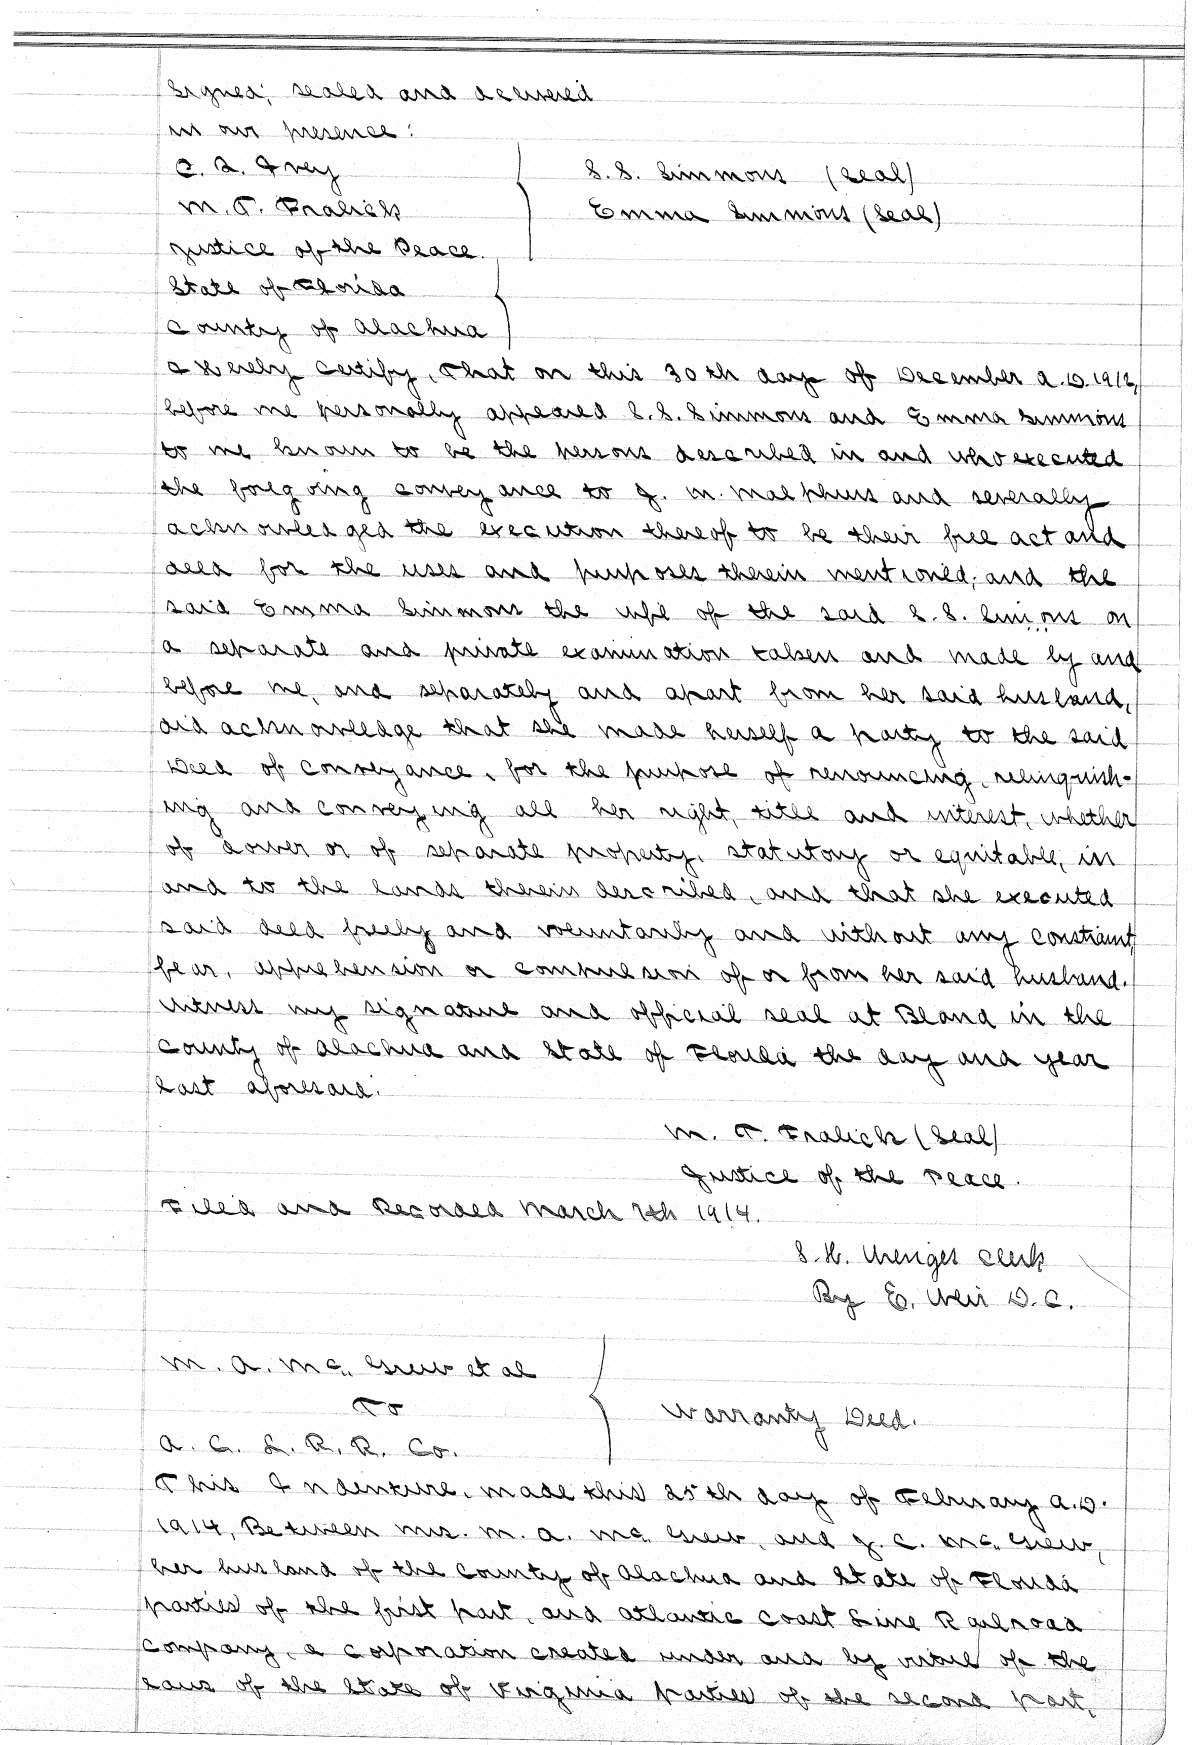 Signed, sealed and delivered
in our presence:
C. A. Ivey
S. S. Simmons (Seal)
M. T. Fralick
Emma Simmons (Seal)
Justice of the Peace.
State of Florida
County of Alachua
I Hereby Certify, That on this 30th day of December A.D. 1912,
before me personally appeared S. S. Simmons and Emma Simmons
to me known to be the persons described in and who executed
the foregoing conveyance to J. M. Malphurs and severally
acknowledged the execution thereof to be their free act and
deed for the uses and purposes therein mentioned; and the
said Emma Simmons the wife of the said S. S. Simons on
a separate and private examination taken and made by and
before me, and separately and apart from her said husband,
did acknowledge that she made herself a party to the said
Deed of conveyance, for the purpose of renouncing, relinquish-
ing and conveying all her right, title and interest, whether
of dower or of separate property, statutory or equitable, in
and to the lands therein described, and that she executed
said deed freely and voluntarily and without any constraint,
fear, apprehension or compulsion of or from her said husband.
Witness my signature and official seal at Bland in the
County of Alachua and State of Florida the day and year
last aforesaid.
M. T. Fralick (Seal)
Justice of the Peace.
Filed and Recorded March 7th 1914.
S. H. Wienges Clerk
By E. Weir D. C.
M. A. Mc. Grew et al
To
Warranty Deed.
A. C. L. R. R. Co.
This Indenture, made this 25th day of February A.D.
1914, Between Mrs. M. A. Mc. Grew, and J. C. Mc. Grew,
her husband of the County of Alachua and State of Florida
parties of the first part, and Atlantic Coast Line Railroad
Company, a corporation created under and by virtue of the
laws of the State of Virginia parties of the second part,